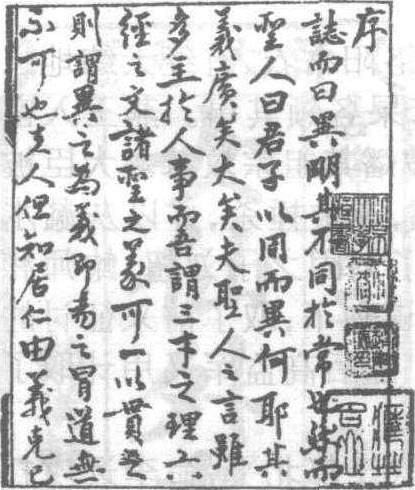 序
誌而曰異明其不同於常也然而
聖人曰君子以同而異何耶其
義廣矣大矣夫聖人之言雖
多主於人事而吾謂三才之理六
經之文諸聖之義可一以貫之
則謂異之為義即易之冒道無
不可也夫人但知居仁由義克己